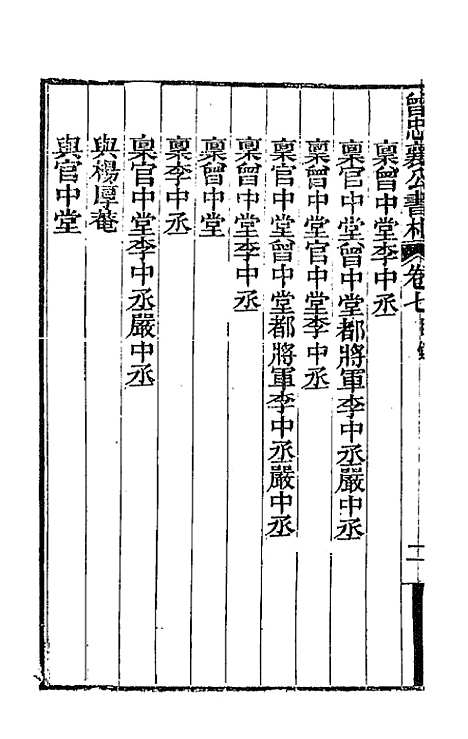 曾忠襄公書札 卷七目錄 二
稟曾中堂李中丞
稟官中堂曾中堂都將軍李中丞嚴中丞
稟曾中堂官中堂李中丞
稟官中堂曾中堂都將軍李中丞嚴中丞
稟曾中堂李中丞
稟曾中堂
稟李中丞
稟官中堂李中丞嚴中丞
與楊厚菴
與官中堂